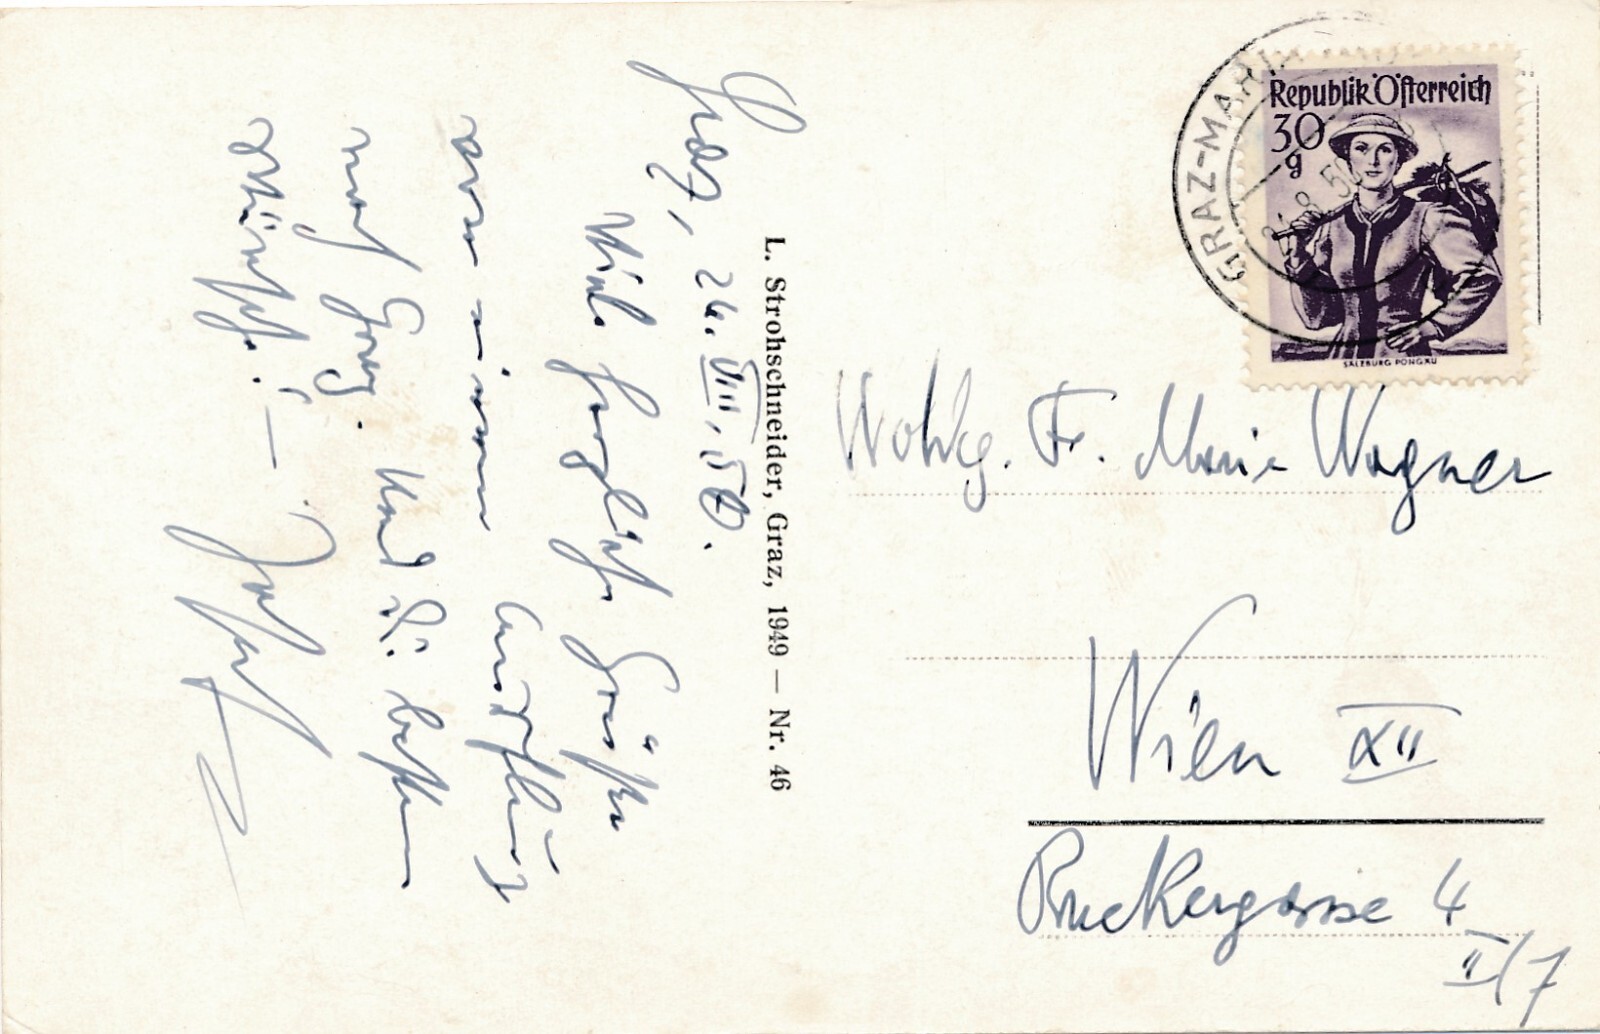 Graz, 26. VIII. 50.
Viele herzliche Grüße
von einem Ausflug
nach Graz. Und die besten
Wünsche! –
Josef
L. Strohschneider, Graz, 1949 — Nr. 46
GRAZ-MARIA
8.50
Republik Österreich
30
g
SALZBURG PONGAU
Wohlg. Fr. Marie Wagner
Wien XII
Ruckergasse 4
II/7